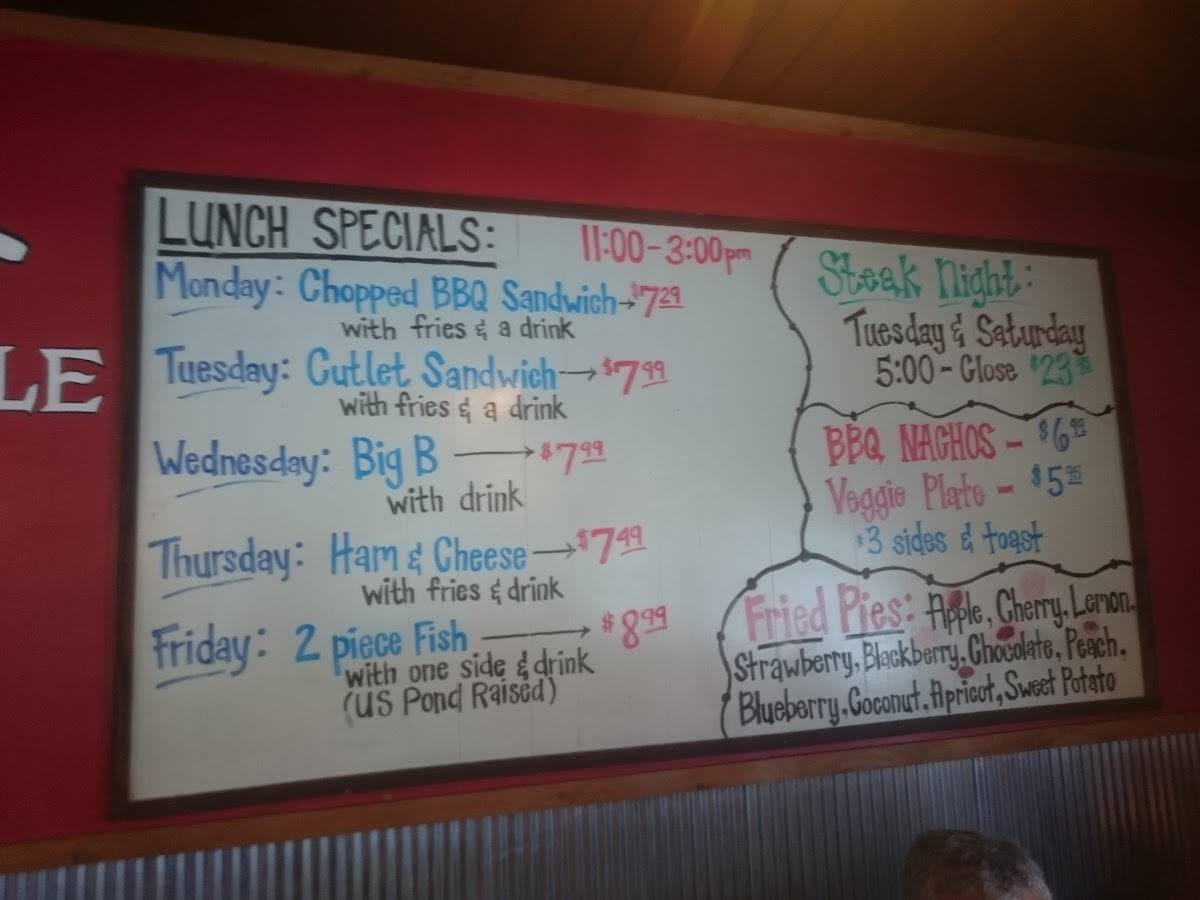 LE
LUNCH SPECIALS: 11:00-3:00pm
Monday: Chopped BBQ Sandwich→$7.29
with fries & a drink
Tuesday: Cutlet Sandwich→$7.99
with fries & a drink
Wednesday: Big B→$7.99
with drink
Thursday: Ham & Cheese→$7.49
with fries & drink
Friday: 2 piece Fish→$8.99
with one side & drink
(US Pond Raised)
Steak Night:
Tuesday & Saturday
5:00-Close $23
BBQ NACHOS - $6.99
Veggie Plate - $5.95
*3 sides & toast
Fried Pies: Apple, Cherry, Lemon,
Strawberry, Blackberry, Chocolate, Peach,
Blueberry, Coconut, Apricot, Sweet Potato